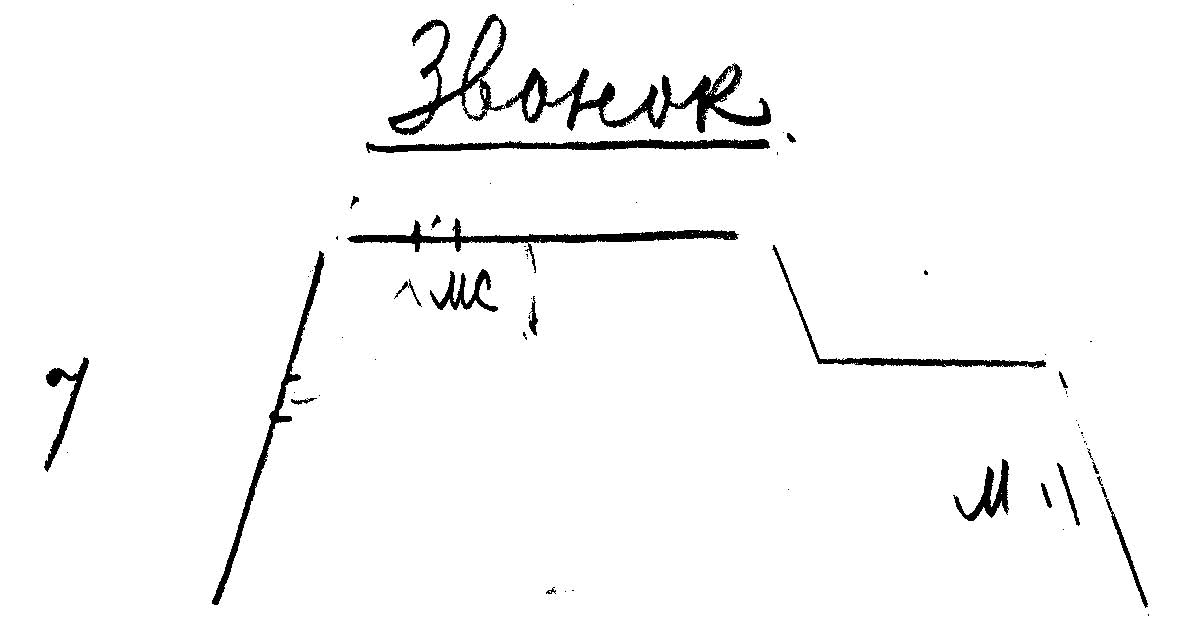 Звонок
МС
7
М